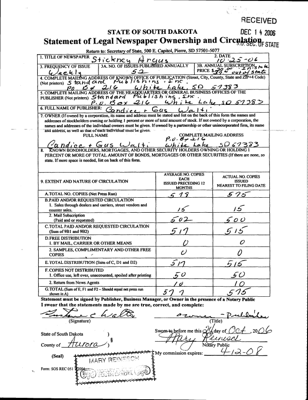 RECEIVED
DEC 14 2006
S.D. SEC. OF STATE
STATE OF SOUTH DAKOTA
Statement of Legal Newspaper Ownership and Circulation
Return to: Secretary of State, 500 E. Capitol, Pierre, SD 57501-5077
1. TITLE OF NEWSPAPER Stickney Argus
2. DATE 10-25-06
3. FREQUENCY OF ISSUE Weekly
3A. NO. OF ISSUES PUBLISHED ANNUALLY 52
3B. ANNUAL SUBSCRIPTION PRICE
4. COMPLETE MAILING ADDRESS OF KNOWN OFFICE OF PUBLICATION (Street, City, County, State and ZIP+4 Code) (Not printers) Standard Publishing, Inc
PO Box 216 White Lake SD 57383
5. COMPLETE MAILING ADDRESS OF THE HEADQUARTERS OF GENERAL BUSINESS OFFICES OF THE PUBLISHER (Not printers) Standard Publishing, Inc
P.O. Box 216 White Lake, SD 57383
6. FULL NAME OF PUBLISHER Candice & Gus Walti
7. OWNER (If owned by a corporation, its name and address must be stated and list on the back of this form the names and addresses of stockholders owning or holding 1 percent or more of total amount of stock. If not owned by a corporation, the names and addresses of the individual owners must be given. If owned by a partnership or other unincorporated firm, its name and address, as well as that of each individual must be given.
FULL NAME COMPLETE MAILING ADDRESS
PO Box 216
Candice & Gus Walti, White Lake, SD 57383
8. KNOWN BONDHOLDERS, MORTGAGEES, AND OTHER SECURITY HOLDERS OWNING OR HOLDING 1 PERCENT OR MORE OF TOTAL AMOUNT OF BONDS, MORTGAGES OR OTHER SECURITIES (If there are none, so state. If more space is needed, list on back of this form.
9. EXTENT AND NATURE OF CIRCULATION
AVERAGE NO. COPIES EACH ISSUE DURING PRECEDING 12 MONTHS
ACTUAL NO. COPIES ISSUED NEAREST TO FILING DATE
A. TOTAL NO. COPIES (Net Press Run) 575
B. PAID AND/OR REQUESTED CIRCULATION
1. Sales through dealers and carriers, street vendors and counter sales. 15 15
2. Mail Subscription (Paid and or requested) 502 500
C. TOTAL PAID AND/OR REQUESTED CIRCULATION (Sum of 9B1 and 9B2) 517 515
D. FREE DISTRIBUTION
1. BY MAIL, CARRIER OR OTHER MEANS 0 0
2. SAMPLES, COMPLIMENTARY AND OTHER FREE COPIES 0 0
E. TOTAL DISTRIBUTION (Sum of C, D1 and D2) 517 515
F. COPIES NOT DISTRIBUTED
1. Office use, left over, unaccounted, spoiled after printing 50 50
2. Return from News Agents 10 10
G. TOTAL (Sum of E, F1 and F2 - Should equal net press run shown in A) 575
Statement must be signed by Publisher, Business Manager, or Owner in the presence of a Notary Public
I swear that the statements made by me are true, correct, and complete:
(Signature) (Title)
State of South Dakota )
County of Aurora )
Sworn to before me this day of Oct, 2006
Mary Reinesch
Notary Public
My commission expires: 4-12-08
(Seal)
MARY REINESCH